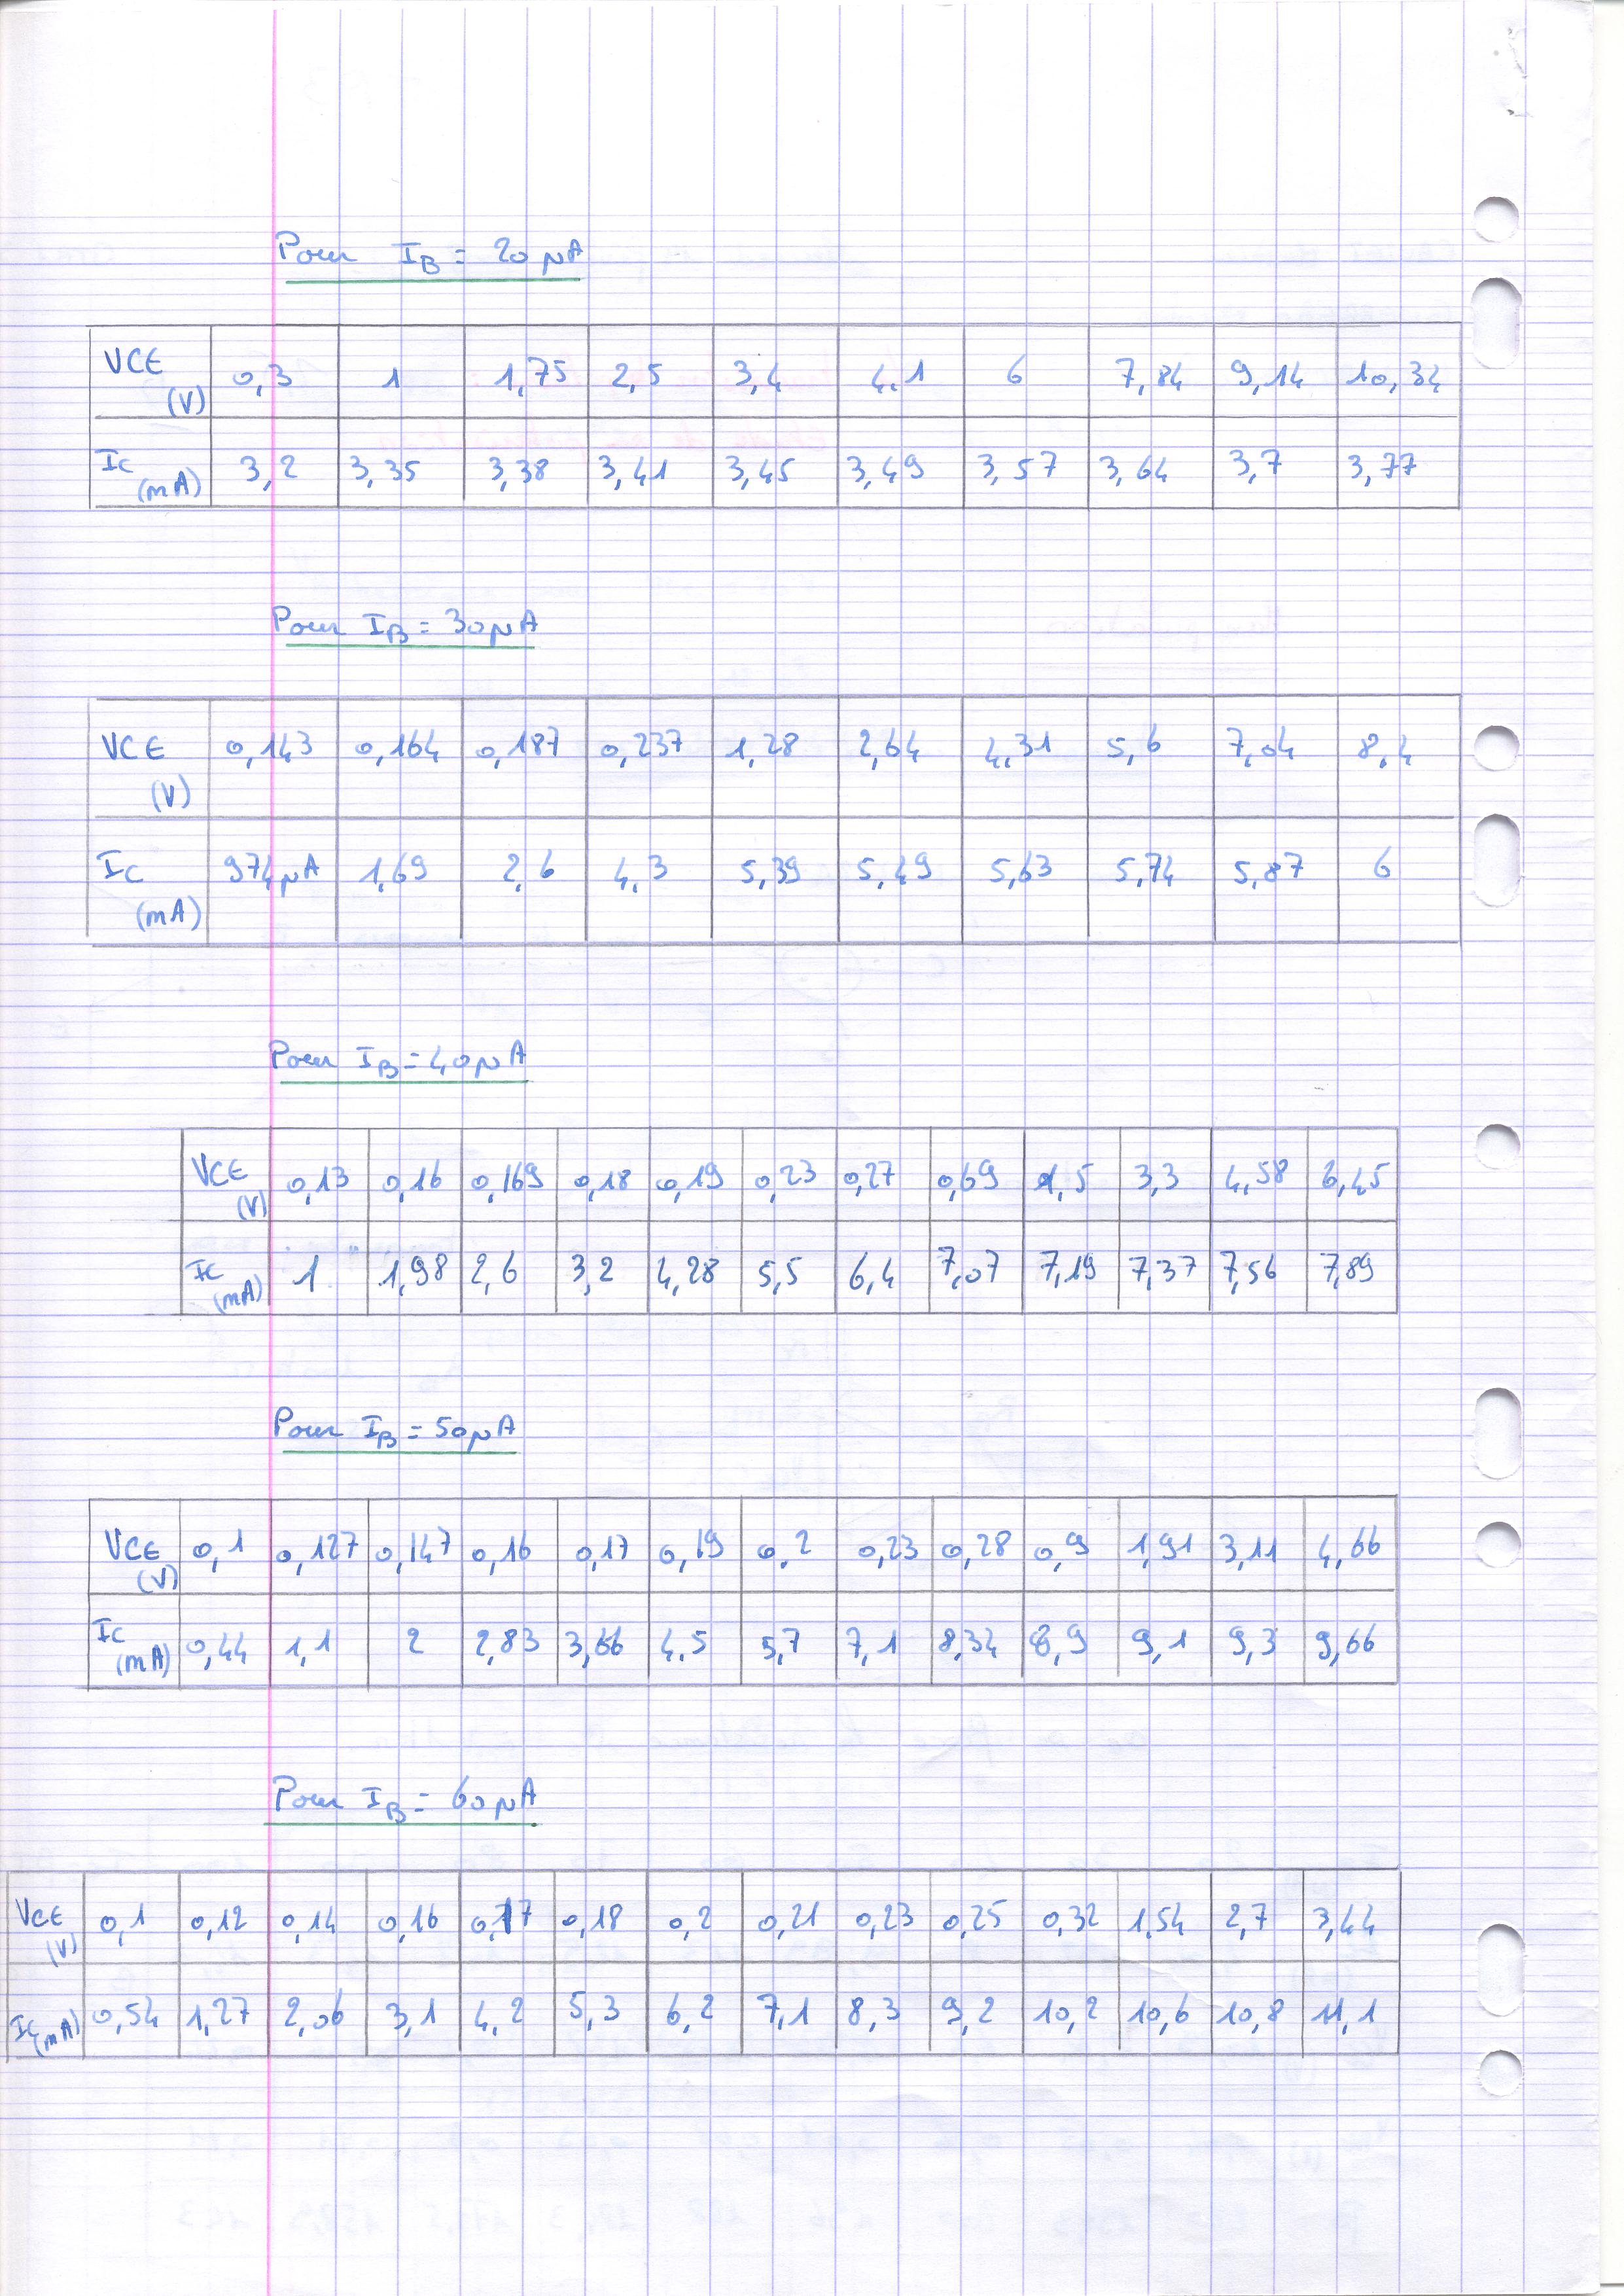 Pour IB = 20 µA
VCE (V) 0,3 1 1,75 2,5 3,4 4,1 6 7,84 9,14 10,34
IC (mA) 3,2 3,35 3,38 3,41 3,45 3,49 3,57 3,64 3,7 3,77
Pour IB = 30µA
VCE (V) 0,143 0,164 0,187 0,237 1,28 2,64 4,31 5,6 7,04 8,4
IC (mA) 974µA 1,69 2,6 4,3 5,39 5,49 5,63 5,74 5,87 6
Pour IB = 40µA
VCE (V) 0,13 0,16 0,169 0,18 0,19 0,23 0,27 0,69 1,5 3,3 4,58 6,45
IC (mA) 1 1,98 2,6 3,2 4,28 5,5 6,4 7,07 7,19 7,37 7,56 7,89
Pour IB = 50µA
VCE (V) 0,1 0,127 0,147 0,16 0,17 0,19 0,2 0,23 0,28 0,9 1,91 3,11 4,66
IC (mA) 0,44 1,1 2 2,83 3,66 4,5 5,7 7,1 8,34 8,9 9,1 9,3 9,66
Pour IB = 60µA
VCE (V) 0,1 0,12 0,14 0,16 0,17 0,18 0,2 0,21 0,23 0,25 0,32 1,54 2,7 3,44
IC (mA) 0,54 1,27 2,06 3,1 4,2 5,3 6,2 7,1 8,3 9,2 10,2 10,6 10,8 11,1